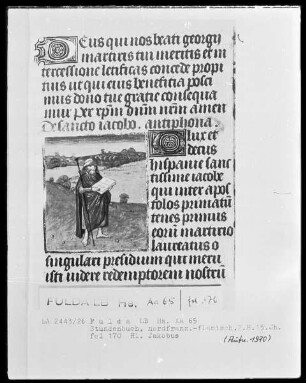 Deus qui nos beati georgii
martiris tui meritis et in
tercessione letificas concede propi
nius ut qui eius beneficia posci
mus dono tue gratie consequa
mur per xpm dnm nrm amen
De sancto iacobo. antiphona.
O lux et
decus
hispanie sanc
tissime iacobe
qui inter apos
tolos primatu
tenes primus
eorum martirio
laureatus o
singulari presidium qui meru
isti videre redemptorem nostru
FULDA LB Hs. Aa 65 fol 170
LA 2445/26 Fulda LB Hs. Aa 65
Stundenbuch, nordfranz.-flämisch, 2.H.15.Jh.
fol 170 Hl. Jakobus